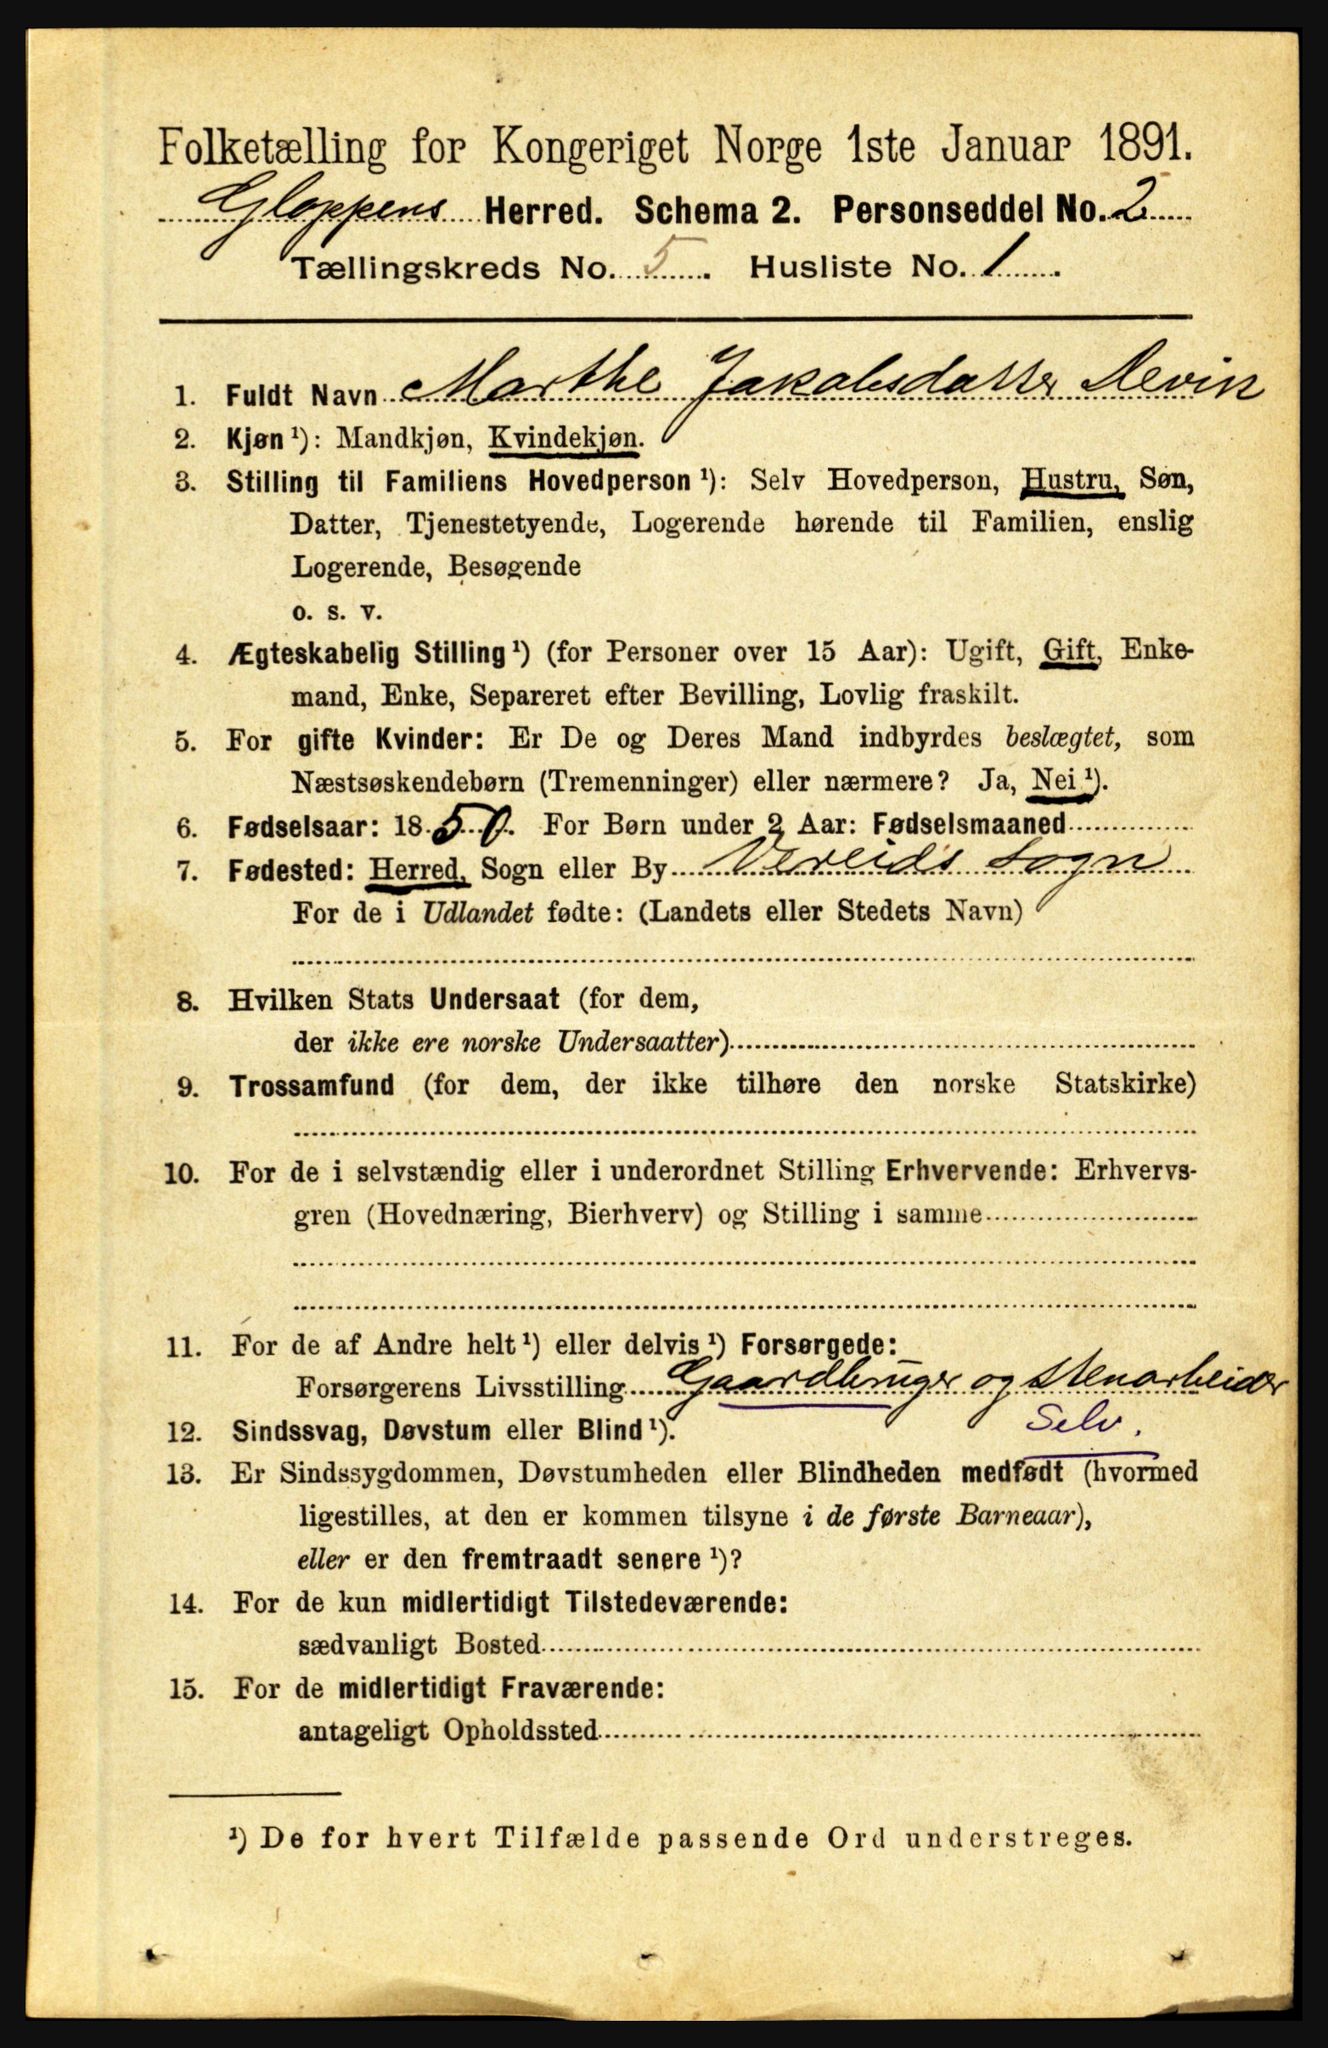 Folketælling for Kongeriget Norge 1ste Januar 1891.
Gloppens Herred. Schema 2. Personseddel No. 2
Tællingskreds No. 5. Husliste No. 1.
1. Fuldt Navn Marthe Jakobsdatter
2. Kjøn¹): Mandkjøn, Kvindekjøn.
3. Stilling til Familiens Hovedperson¹): Selv Hovedperson, Hustru, Søn,
Datter, Tjenestetyende, Logerende hørende til Familien, enslig
Logerende, Besøgende
o. s. v.
4. Ægteskabelig Stilling¹) (for Personer over 15 Aar): Ugift, Gift, Enke-
mand, Enke, Separeret efter Bevilling, Lovlig fraskilt.
5. For gifte Kvinder: Er De og Deres Mand indbyrdes beslægtet, som
Næstsøskendebørn (Tremenninger) eller nærmere? Ja, Nei¹).
6. Fødselsaar: 1850. For Børn under 2 Aar: Fødselsmaaned
7. Fødested: Herred, Sogn eller By Vereids Sogn
For de i Udlandet fødte: (Landets eller Stedets Navn)
8. Hvilken Stats Undersaat (for dem,
der ikke ere norske Undersaatter)
9. Trossamfund (for dem, der ikke tilhøre den norske Statskirke)
10. For de i selvstændig eller i underordnet Stilling Erhvervende: Erhvervs-
gren (Hovednæring, Bierhverv) og Stilling i samme
11. For de af Andre helt¹) eller delvis¹) Forsørgede:
Forsørgerens Livsstilling Gaardbruger og Stenarbeider
Selv.
12. Sindssvag, Døvstum eller Blind¹).
13. Er Sindssygdommen, Døvstumheden eller Blindheden medfødt (hvormed
ligestilles, at den er kommen tilsyne i de første Barneaar),
eller er den fremtraadt senere¹)?
14. For de kun midlertidigt Tilstedeværende:
sædvanligt Bosted
15. For de midlertidigt Fraværende:
antageligt Opholdssted
¹) De for hvert Tilfælde passende Ord understreges.